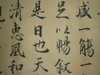 咸一觴一
足以暢叙
是日也天
清惠風和